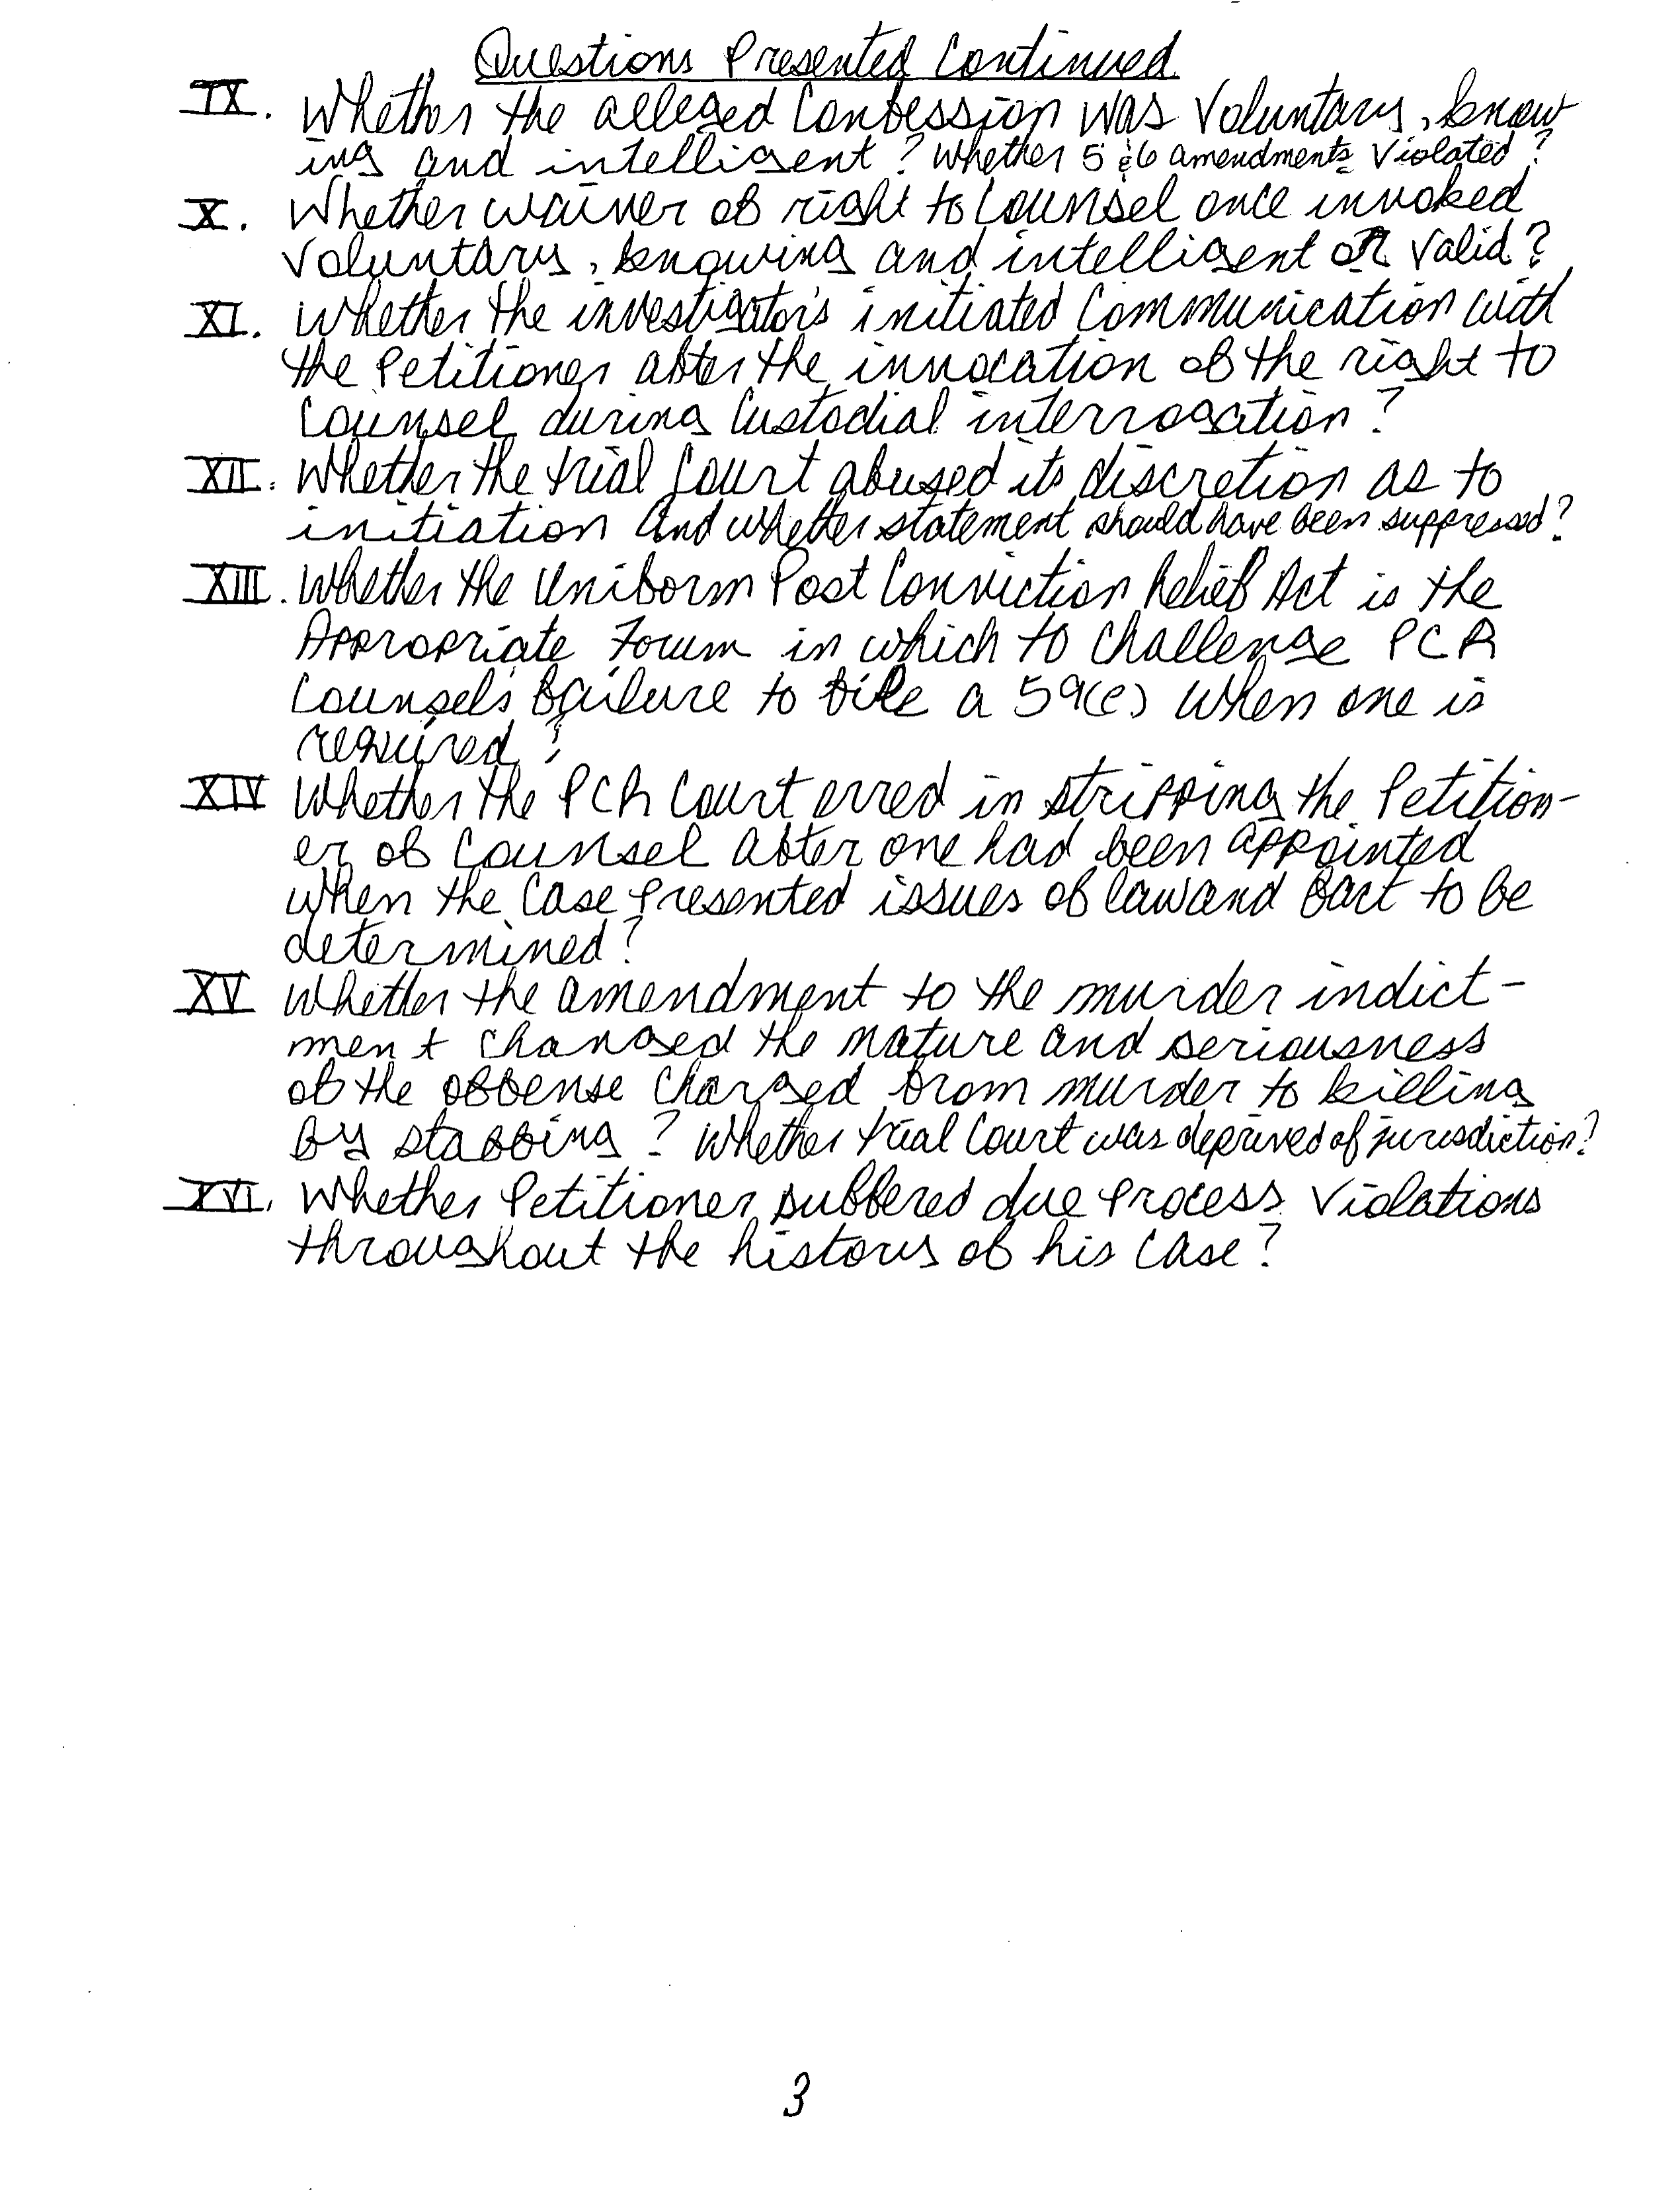 Questions Presented Continued
IX. Whether the alleged Confession was Voluntary, know
ing and intelligent? Whether 5 & 6 amendments Violated?
X. Whether waiver of right to Counsel once invoked
Voluntary, knowing and intelligent or Valid?
XI. Whether the investigator's initiated Communication with
the Petitioner after the invocation of the right to
Counsel during Custodial interrogation?
XII. Whether the trial Court abused its discretion as to
initiation and whether statement should have been suppressed?
XIII. Whether the Uniform Post Conviction Relief Act is the
Appropriate Forum in which to Challenge PCR
Counsel's failure to file a 59(e) when one is
required?
XIV Whether the PCR Court erred in stripping the Petition-
er of Counsel after one had been appointed
when the Case presented issues of law and fact to be
determined?
XV Whether the amendment to the murder indict-
ment Changed the nature and seriousness
of the offense Charged from murder to killing
by stabbing? Whether trial Court was deprived of jurisdiction?
XVI. Whether Petitioner suffered due Process Violations
throughout the history of his Case?
3